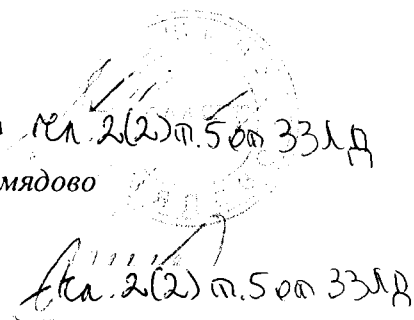 чл. 2(2) т. 5 от ЗЗЛД
мядово
чл. 2(2) т. 5 от ЗЗЛД